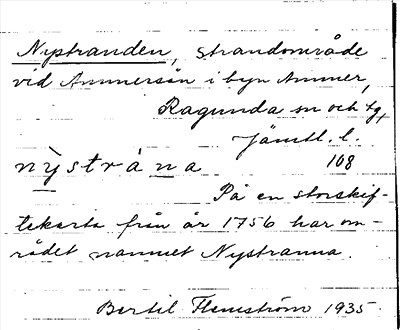 Nystranden, strandområde
vid Ammerån i byn Ammer,
Ragunda sn och tg,
Jämtl. l.
nỳstrȧna 108
På en storskif-
teskarta från år 1756 har om-
rådet namnet Nystranna.
Bertil Flemström 1935.